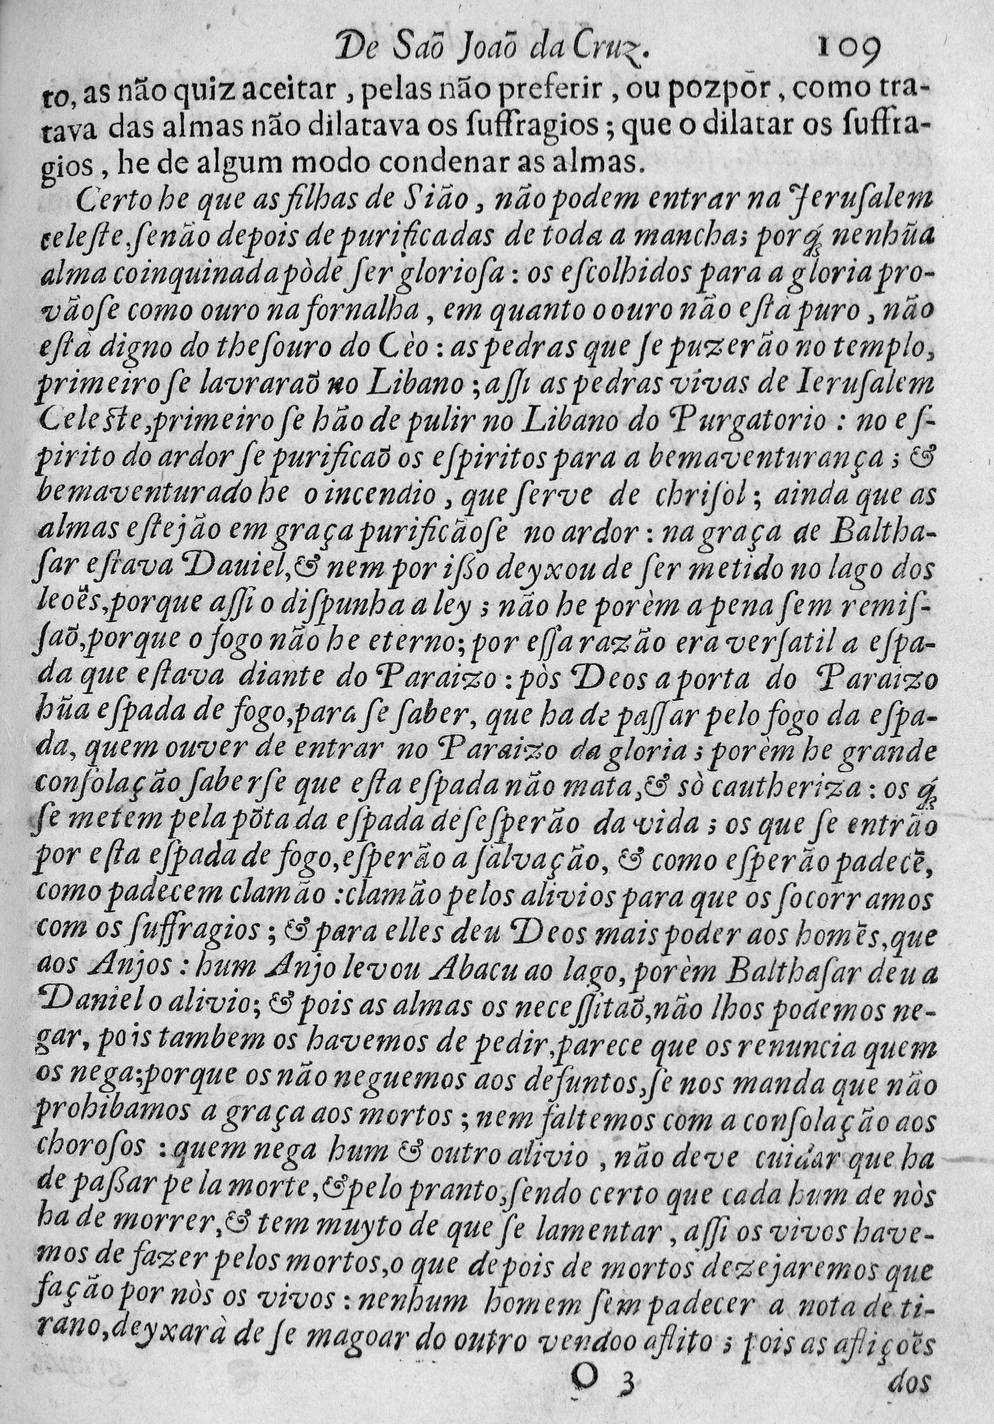 De Saõ Joaõ da Cruz. 109
to, as não quiz aceitar, pelas não preferir, ou pozpòr, como tra-
tava das almas não dilatava os ſuffragios; que o dilatar os ſuffra-
gios, he de algum modo condenar as almas.
Certo he que as filhas de Sião, não podem entrar na Jeruſalem
celeſte, ſenão depois de purificadas de toda a mancha; porq́ nenhũa
alma coinquinada pòde ſer glorioſa: os eſcolhidos para a gloria pro-
vãoſe como ouro na fornalha, em quanto o ouro não eſtà puro, não
eſtà digno do theſouro do Cèo: as pedras que ſe puzerão no templo,
primeiro ſe lavraraõ no Libano; aſſi as pedras vivas de Ieruſalem
Celeſte, primeiro ſe hão de pulir no Libano do Purgatorio: no eſ-
pirito do ardor ſe purificaõ os eſpiritos para a bemaventurança; &
bemaventurado he o incendio, que ſerve de chriſol; ainda que as
almas eſtejão em graça purificãoſe no ardor: na graça de Baltha-
ſar eſtava Daniel, & nem por iſſo deyxou de ſer metido no lago dos
leoẽs, porque aſſi o diſpunha a ley; não he porèm a pena ſem remiſ-
ſaõ, porque o fogo não he eterno; por eſſa razão era verſatil a eſpa-
da que eſtava diante do Paraizo: pòs Deos a porta do Paraizo
hũa eſpada de fogo, para ſe ſaber, que ha de paſſar pelo fogo da eſpa-
da, quem ouver de entrar no Paraizo da gloria; porèm he grande
conſolação ſaberſe que eſta eſpada não mata, & sò cautheriza: os q́
ſe metem pela põta da eſpada deſeſperão da vida; os que ſe entrão
por eſta eſpada de fogo, eſperão a ſalvação, & como eſperão padecẽ,
como padecem clamão: clamão pelos alivios para que os ſocorramos
com os ſuffragios; & para elles deu Deos mais poder aos homẽs, que
aos Anjos: hum Anjo levou Abacu ao lago, porèm Balthaſar deu a
Daniel o alivio; & pois as almas os neceſſitaõ, não lhos podemos ne-
gar, pois tambem os havemos de pedir, parece que os renuncia quem
os nega; porque os não neguemos aos defuntos, ſe nos manda que não
prohibamos a graça aos mortos; nem faltemos com a conſolação aos
choroſos: quem nega hum & outro alivio, não deve cuidar que ha
de paſſar pela morte, & pelo pranto, ſendo certo que cada hum de nòs
ha de morrer, & tem muyto de que ſe lamentar, aſſi os vivos have-
mos de fazer pelos mortos, o que depois de mortos dezejaremos que
fação por nòs os vivos: nenhum homem ſem padecer a nota de ti-
rano, deyxarà de ſe magoar do outro vendoo aflito; pois as afliçoẽs
O 3 dos